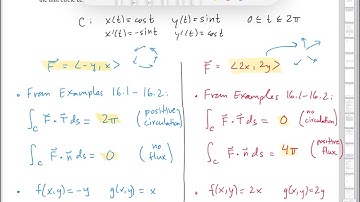 C: x(t) = cost y(t) = sint 0 ≤ t ≤ 2π
x'(t) = -sint y'(t) = cost
F = <-y, x>
• From Examples 16.1-16.2:
∫_C F · T ds = 2π (positive circulation)
∫_C F · n ds = 0 (no flux)
• f(x,y) = -y g(x,y) = x
F = <2x, 2y>
• From Examples 16.1-16.2:
∫_C F · T ds = 0 (no circulation)
∫_C F · n ds = 4π (positive flux)
• f(x,y) = 2x g(x,y) = 2y